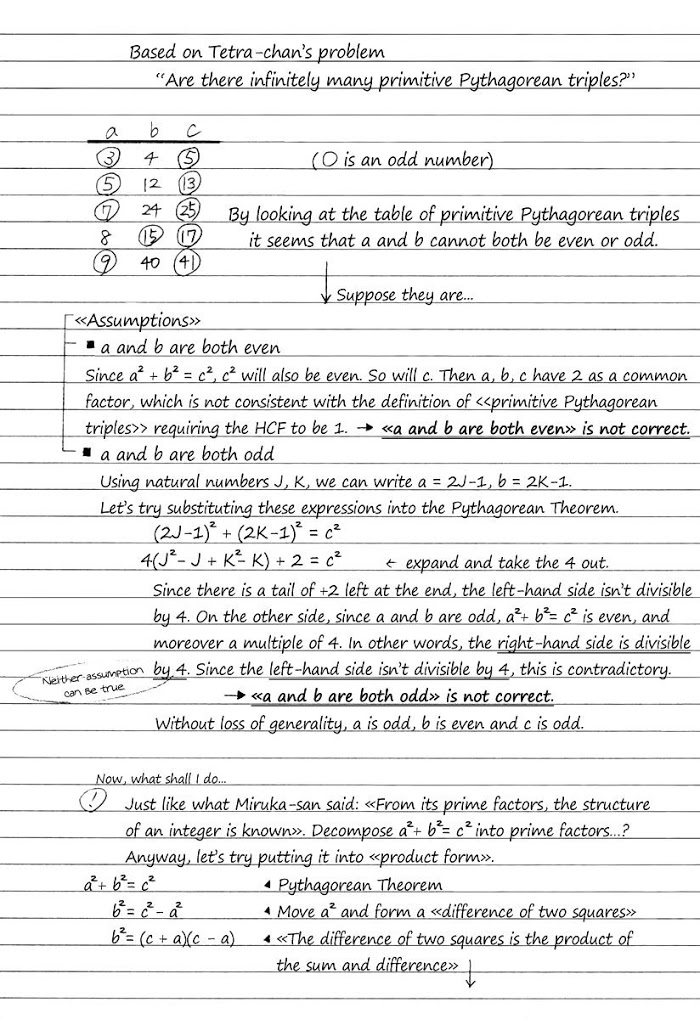 Based on Tetra-chan's problem
"Are there infinitely many primitive Pythagorean triples?"
a b c
3 4 5
(O is an odd number)
5 12 13
7 24 25
By looking at the table of primitive Pythagorean triples
8 15 17
it seems that a and b cannot both be even or odd.
9 40 41
↓ Suppose they are...
«Assumptions»
▪ a and b are both even
Since a² + b² = c², c² will also be even. So will c. Then a, b, c have 2 as a common
factor, which is not consistent with the definition of <<primitive Pythagorean
triples>> requiring the HCF to be 1. → «a and b are both even» is not correct.
▪ a and b are both odd
Using natural numbers J, K, we can write a = 2J-1, b = 2K-1.
Let's try substituting these expressions into the Pythagorean Theorem.
(2J-1)² + (2K-1)² = c²
4(J²- J + K²- K) + 2 = c² ← expand and take the 4 out.
Since there is a tail of +2 left at the end, the left-hand side isn't divisible
by 4. On the other side, since a and b are odd, a²+ b²= c² is even, and
moreover a multiple of 4. In other words, the right-hand side is divisible
by 4. Since the left-hand side isn't divisible by 4, this is contradictory.
Neither assumption
can be true
→ «a and b are both odd» is not correct.
Without loss of generality, a is odd, b is even and c is odd.
Now, what shall I do...
! Just like what Miruka-san said: «From its prime factors, the structure
of an integer is known». Decompose a²+ b²= c² into prime factors...?
Anyway, let's try putting it into «product form».
a²+ b²= c² ◂ Pythagorean Theorem
b²= c² - a² ◂ Move a² and form a «difference of two squares»
b²= (c + a)(c - a) ◂ «The difference of two squares is the product of
the sum and difference» ↓